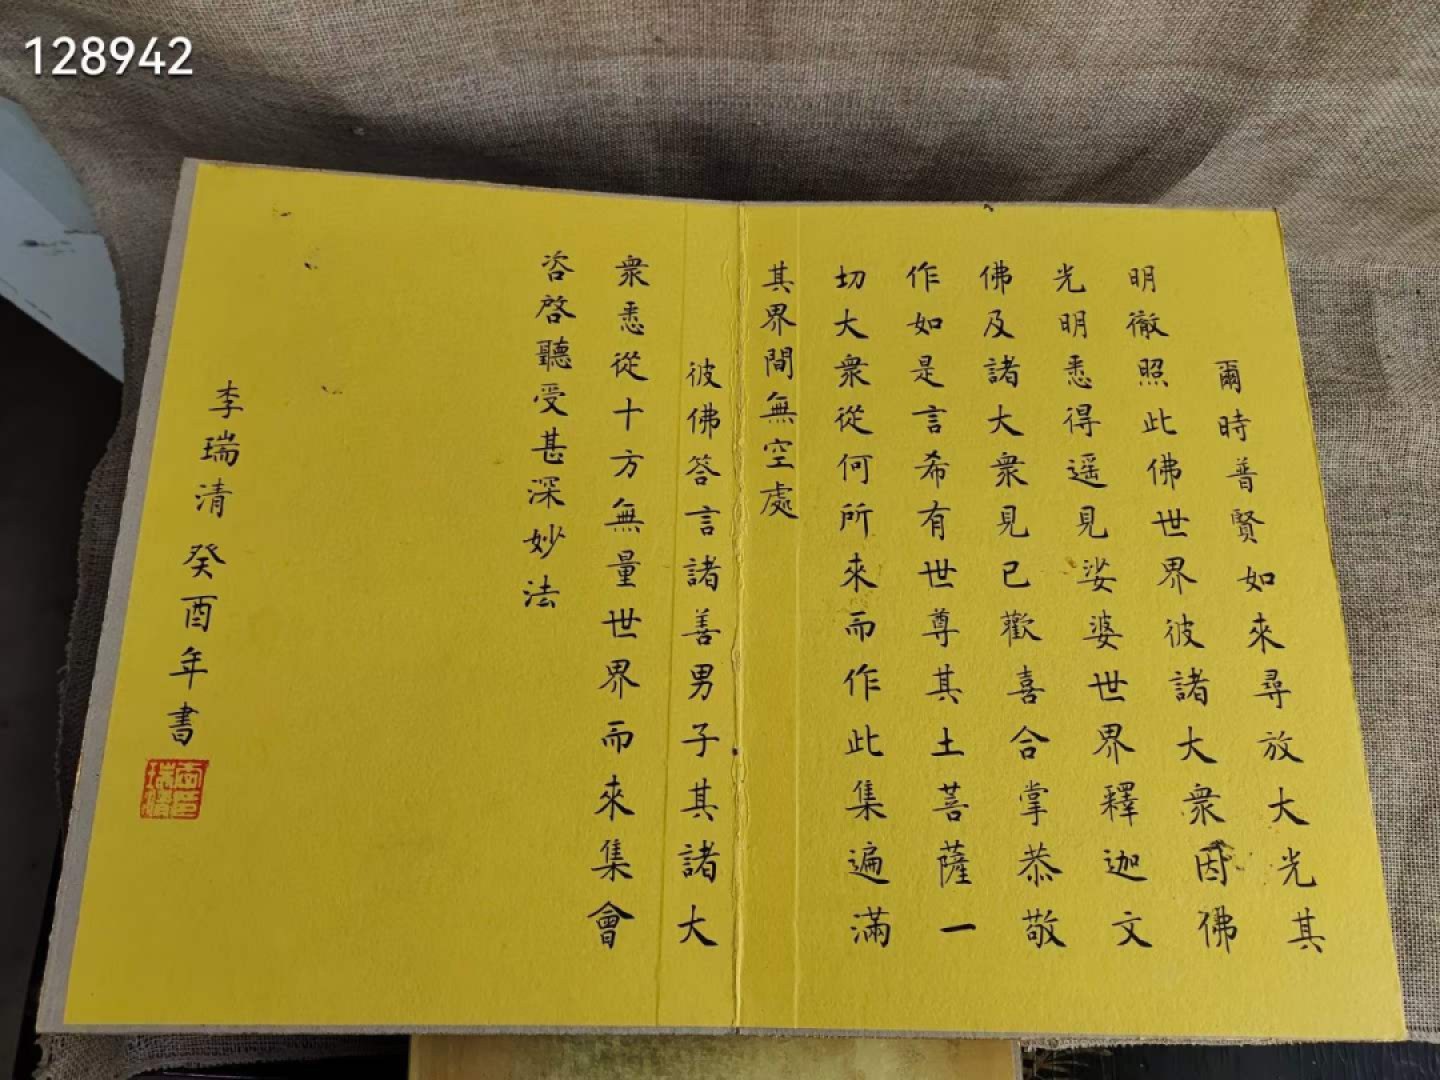 128942
爾時普賢如來尋放大光其
明徹照此佛世界彼諸大衆因佛
光明悉得遥見娑婆世界釋迦文
佛及諸大衆見已歡喜合掌恭敬
作如是言希有世尊其土菩薩一
切大衆從何所來而作此集遍滿
其界間無空處
彼佛答言諸善男子其諸大
衆悉從十方無量世界而來集會
咨啓聽受甚深妙法
李瑞清癸酉年書